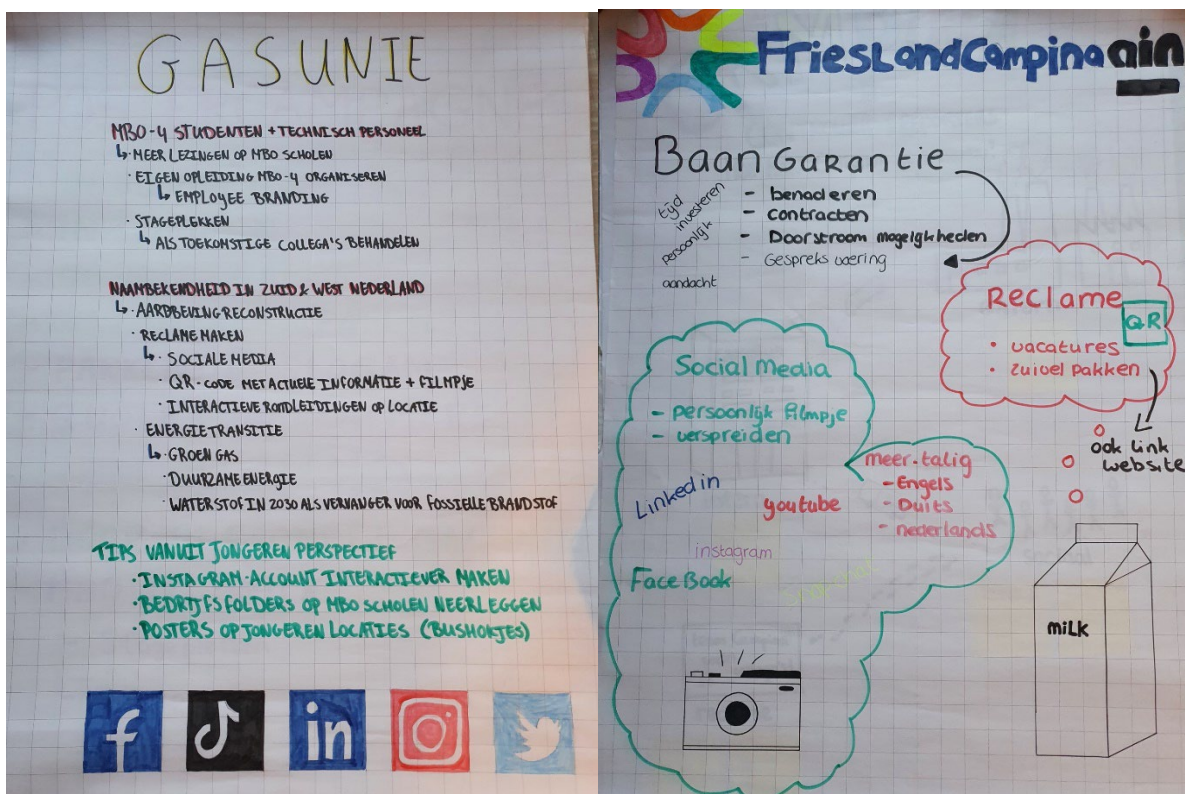 GASUNIE
MBO-4 STUDENTEN + TECHNISCH PERSONEEL
↳· MEER LEZINGEN OP MBO SCHOLEN
· EIGEN OPLEIDING MBO-4 ORGANISEREN
↳ EMPLOYEE BRANDING
· STAGEPLEKKEN
↳ ALS TOEKOMSTIGE COLLEGA'S BEHANDELEN
NAAMBEKENDHEID IN ZUID & WEST NEDERLAND
↳· AARDBEVING RECONSTRUCTIE
· RECLAME MAKEN
↳· SOCIALE MEDIA
· QR-CODE MET ACTUELE INFORMATIE + FILMPJE
· INTERACTIEVE RONDLEIDINGEN OP LOCATIE
· ENERGIETRANSITIE
↳· GROEN GAS
· DUURZAME ENERGIE
· WATERSTOF IN 2030 ALS VERVANGER VOOR FOSSIELE BRANDSTOF
TIPS VANUIT JONGEREN PERSPECTIEF
· INSTAGRAM-ACCOUNT INTERACTIEVER MAKEN
· BEDRIJFSFOLDERS OP MBO SCHOLEN NEERLEGGEN
· POSTERS OP JONGEREN LOCATIES (BUSHOKJES)
f
in
FrieslandCampina ain
Baan Garantie
tijd
investeren
persoonlijk
aandacht
- benaderen
- contracten
- Doorstroom mogelijkheden
- Gespreks voering
Reclame
QR
• vacatures
• zuivel pakken
ook link
website
Social media
- persoonlijk filmpje
- verspreiden
meer-talig
- Engels
- Duits
- nederlands
Linked in
youtube
instagram
FaceBook
milk